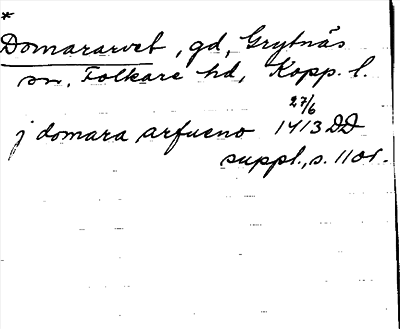 *
Domararvet, gd, Grytnäs
sn, Folkare hd, Kopp. l.
j domara arfueno 27/6 1413 DD
suppl., s. 110f.